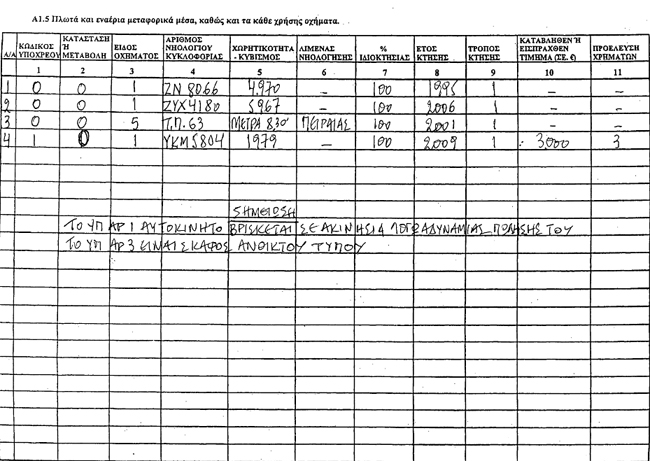 Α1.5 Πλωτά και εναέρια μεταφορικά μέσα, καθώς και τα κάθε χρήσης οχήματα.
Α/Α ΚΩΔΙΚΟΣ ΥΠΟΧΡΕΟΥ ΚΑΤΑΣΤΑΣΗ Ή ΜΕΤΑΒΟΛΗ ΕΙΔΟΣ ΟΧΗΜΑΤΟΣ ΑΡΙΘΜΟΣ ΝΗΟΛΟΓΙΟΥ ΚΥΚΛΟΦΟΡΙΑΣ ΧΩΡΗΤΙΚΟΤΗΤΑ - ΚΥΒΙΣΜΟΣ ΛΙΜΕΝΑΣ ΝΗΟΛΟΓΗΣΗΣ % ΙΔΙΟΚΤΗΣΙΑΣ ΕΤΟΣ ΚΤΗΣΗΣ ΤΡΟΠΟΣ ΚΤΗΣΗΣ ΚΑΤΑΒΛΗΘΕΝ Ή ΕΙΣΠΡΑΧΘΕΝ ΤΙΜΗΜΑ (ΣΕ. €) ΠΡΟΕΛΕΥΣΗ ΧΡΗΜΑΤΩΝ
1 2 3 4 5 6 7 8 9 10 11
1 0 0 1 ΖΝ 8066 4.970 – 100 1995 1 – –
2 0 0 1 ΖΥΧ4180 5967 – 100 2006 1 – –
3 0 0 5 Τ.Π. 63 ΜΕΤΡΑ 8,30 ΠΕΙΡΑΙΑΣ 100 2001 1 – –
4 1 0 1 ΥΚΜ5804 1979 – 100 2009 1 3.000 3
ΣΗΜΕΙΩΣΗ
ΤΟ ΥΠ ΑΡ 1 ΑΥΤΟΚΙΝΗΤΟ ΒΡΙΣΚΕΤΑΙ ΣΕ ΑΚΙΝΗΣΙΑ ΛΟΓΩ ΑΔΥΝΑΜΙΑΣ ΠΩΛΗΣΗΣ ΤΟΥ
ΤΟ ΥΠ ΑΡ 3 ΕΙΝΑΙ ΣΚΑΦΟΣ ΑΝΟΙΚΤΟΥ ΤΥΠΟΥ